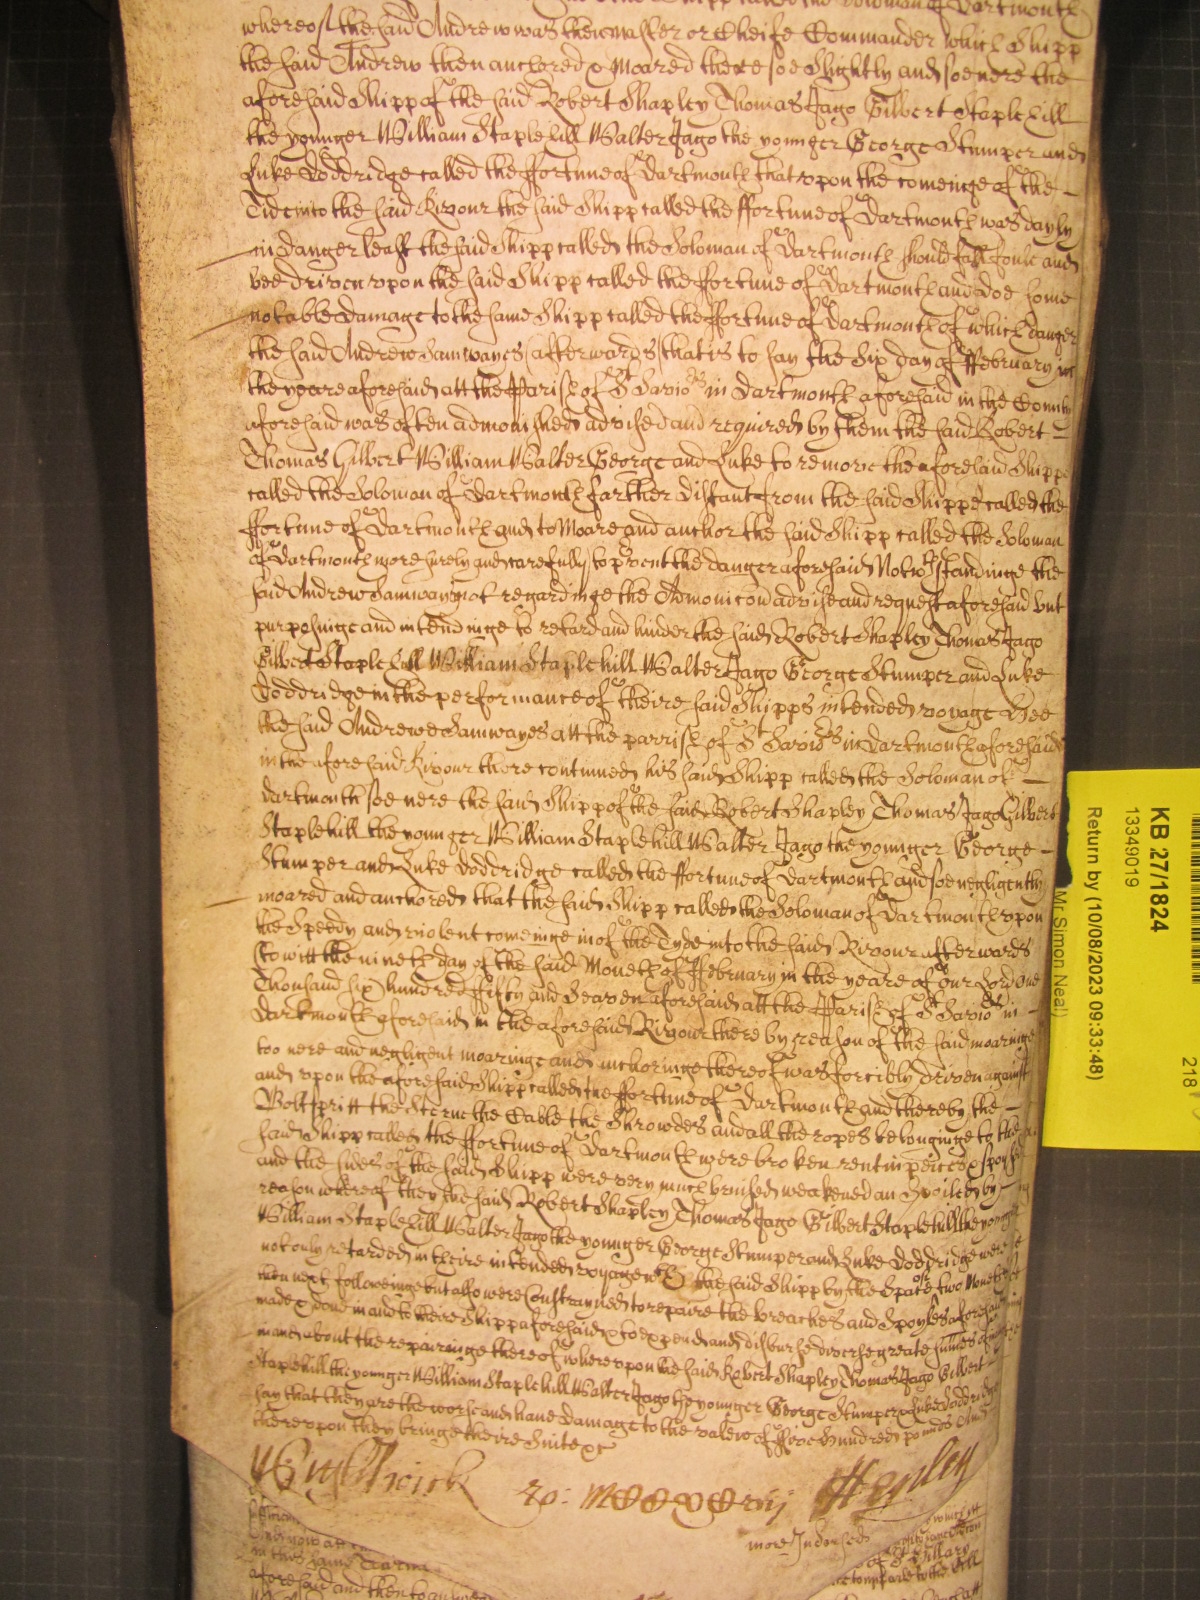 Shipp called the Soloman of Dartmouth
whereof the said Andrew was then master or Cheife Commander which Shipp
the said Andrew then anchored & Moared there soe slightly and soe nere the
aforesaid Shipp of the said Robert Shapley Thomas Jago Gilbert Staplehill
the younger William Staplehill Walter Jago the younger George Stumper and
Luke Doddridge called the ffortune of Dartmouth that vpon the comeinge of the
Tide into the said Rivour the said Shipp called the ffortune of Dartmouth was dayly
in danger least the said Shipp called the Soloman of Dartmouth should fall foule and
bee driven vpon the said Shipp called the ffortune of Dartmouth and doe some
notable Damage to the same Shipp called the ffortune of Dartmouth of which danger
the said Andrew Samwayes afterwards that is to say the Six day of ffebruary in
the yeare aforesaid att the Parish of St Saviors in Dartmouth aforesaid in the County
aforesaid was often admonished advised and required by them the said Robert
Thomas Gilbert William Walter George and Luke to remove the aforesaid Shipp
called the Soloman of Dartmouth farther distant from the said Shippe called the
ffortune of Dartmouth and to Moare and anchor the said Shipp called the Soloman
of Dartmouth more surely and carefully to prvent the danger aforesaid Notwthstandinge the
said Andrew Samwayes not regardinge the Admonicon advise and request aforesaid but
purposinge and intendinge to retard and hinder the said Robert Shapley Thomas Jago
Gilbert Staplehill William Staplehill Walter Jago George Stumper and Luke
Doddridge in the performance of theire said Shipps intended voyage Hee
the said Andrewe Samwayes att the parrish of St Saviors in Dartmouth aforesaid
in the aforesaid Rivour there continued his said Shipp called the Soloman of
Dartmouth soe nere the said Shipp of the said Robert Shapley Thomas Jago Gilbert
Staplehill the younger William Staplehill Walter Jago the younger George
Stumper and Luke Doddridge called the ffortune of Dartmouth and soe negligently
moared and anchored that the said Shipp called the Soloman of Dartmouth vpon
the Speedy and violent comeinge in of the Tyde into the said Rivour afterwards
(to witt the nineth day of the said Moneth of ffebruary in the yeare of our Lord One
Thousand six hundred ffifty and Seaven aforesaid att the Parish of St Saviors in
Dartmouth aforesaid in the aforesaid Rivour there by reason of the said moaringe
too nere and negligent moaringe and anchoringe thereof was forcibly driven against
and vpon the aforesaid Shipp called the ffortune of Dartmouth and thereby the
Boltspritt the Sterne the Cable the Shrowdes and all the ropes belonginge to the
said Shipp called the ffortune of Dartmouth were broken rent in peices & spoyled
and the sides of the said Shipp were very much bruised weakened and Spoiled by
reason whereof they the said Robert Shapley Thomas Jago Gilbert Staplehill the younger
William Staplehill Walter Jago the younger George Stumper and Luke Doddridge were
not only retarded in theire intended voyage wth the said Shipp by the Space of two Moneths
then next followeinge but also were Constrayned to repaire the breaches and Spoyles aforesaid
made & done in and to theire Shipp aforesaid & to expend and disburse diverse great summes of
money about the repairinge thereof wherevpon the said Robert Shapley Thomas Jago Gilbert
Staplehill the younger William Staplehill Walter Jago the younger George Stumper & Luke Doddridge
say that they are the worse and have Damage to the valew of ffive Hundred pounds And
therevpon they bringe theire Suite &c
Wightwick ro: Henley
more Indorsed
which
of St Hillary
in the same Tearme
aforesaid and then to
KB 27/1824
13349019
Return by (10/08/2023 09:33:48)
Mr Simon Neal)
218